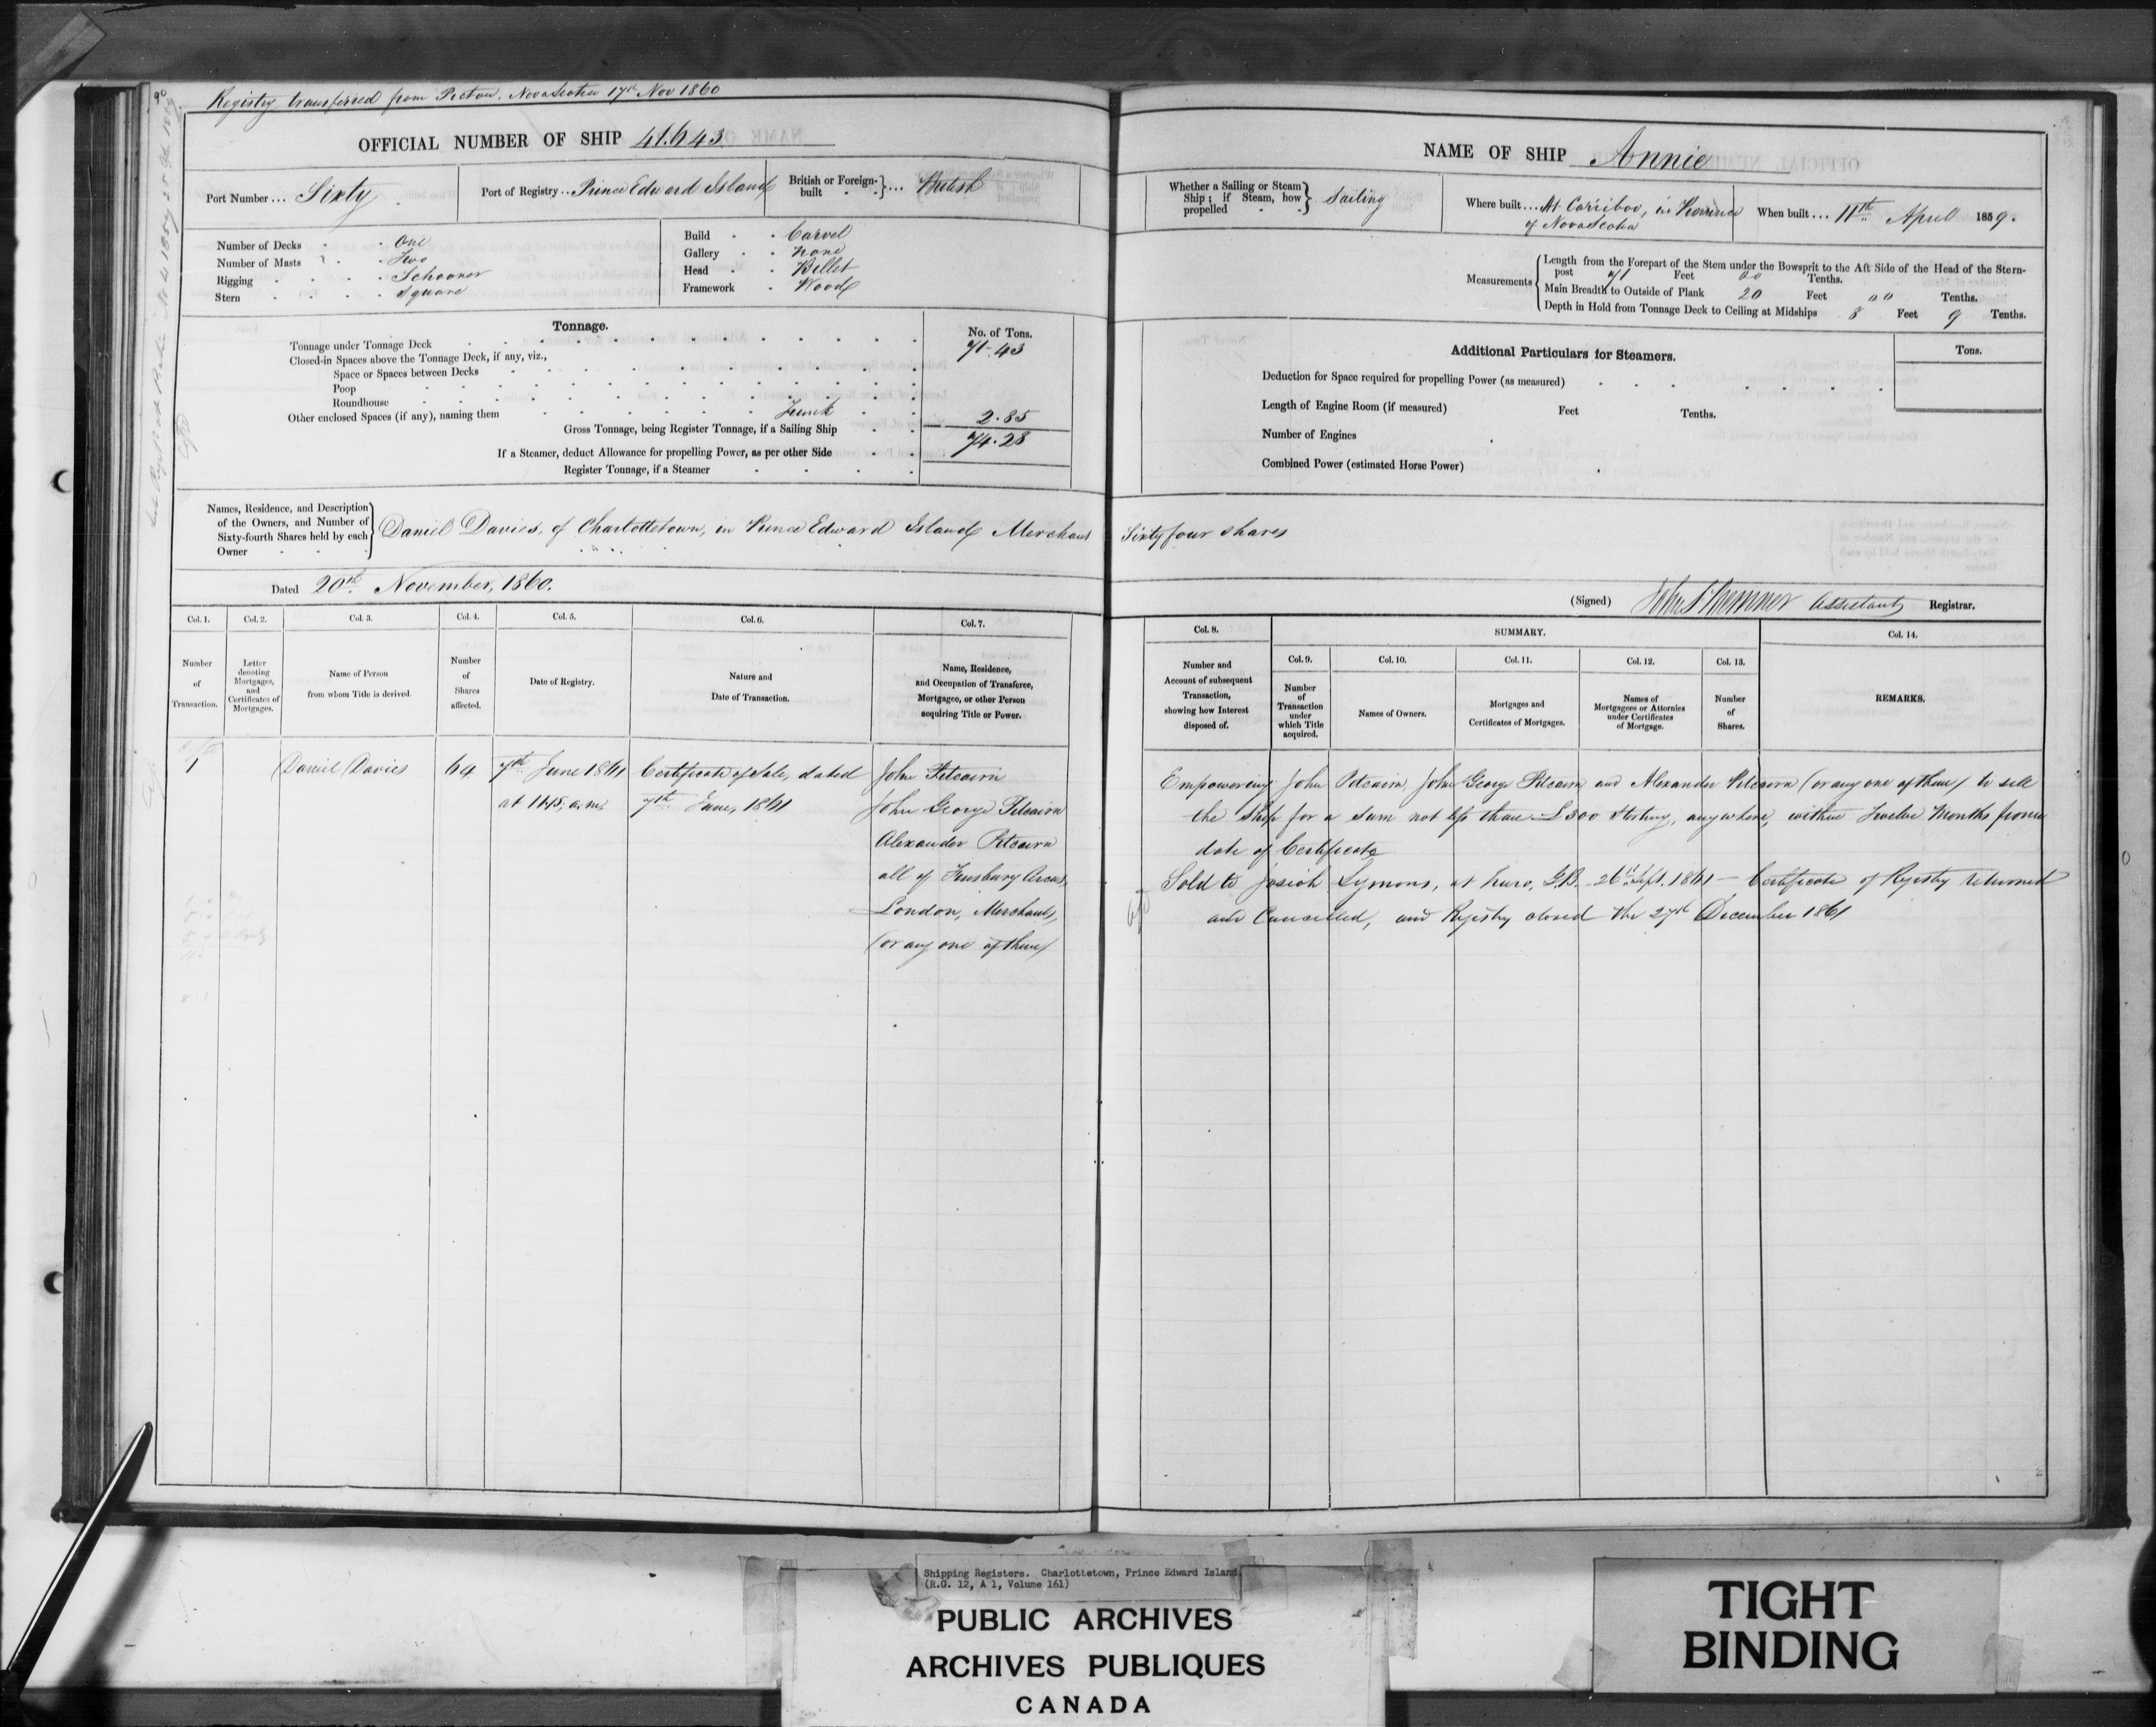 90
Registry transferred from Pictou. Nova Scotia 17th Nov 1860
OFFICIAL NUMBER OF SHIP 41.643
Port Number... Sixty
Port of Registry.. Prince Edward Island
British or Foreign-built } ... British
Number of Decks One
Number of Masts Two
Rigging Schooner
Stern Square
Build Carvel
Gallery None
Head Billet
Framework Wood
Tonnage.
No. of Tons.
Tonnage under Tonnage Deck 71.43
Closed-in Spaces above the Tonnage Deck, if any, viz.,
Space or Spaces between Decks
Poop
Roundhouse
Other enclosed Spaces (if any), naming them Trunk 2.85
Gross Tonnage, being Register Tonnage, if a Sailing Ship 74.28
If a Steamer, deduct Allowance for propelling Power, as per other Side
Register Tonnage, if a Steamer
Names, Residence, and Description
of the Owners, and Number of
Sixty-fourth Shares held by each
Owner
Daniel Davies, of Charlottetown, in Prince Edward Island Merchant
Dated 20th November, 1860.
Col. 1. Col. 2. Col. 3. Col. 4. Col. 5. Col. 6. Col. 7.
Number of Transaction.
Letter denoting Mortgages, and Certificates of Mortgages.
Name of Person from whom Title is derived.
Number of Shares affected.
Date of Registry.
Nature and Date of Transaction.
Name, Residence, and Occupation of Transferee, Mortgagee, or other Person acquiring Title or Power.
1 Daniel Davies 64 7th June 1861 Certificate of Sale, dated John Pitcairn
at 11.15, a.m. 7th June, 1861 John George Pitcairn
Alexander Pitcairn
all of Finsbury Circus,
London, Merchants,
(or any one of them)
NAME OF SHIP Annie
Whether a Sailing or Steam
Ship; if Steam, how
propelled
Sailing
Where built... At Carriboo, in Province
of Nova Scotia
When built... 11th April 1859.
Measurements
Length from the Forepart of the Stem under the Bowsprit to the Aft Side of the Head of the Stern-
post 71 Feet 00 Tenths.
Main Breadth to Outside of Plank 20 Feet 00 Tenths.
Depth in Hold from Tonnage Deck to Ceiling at Midships 8 Feet 9 Tenths.
Additional Particulars for Steamers.
Tons.
Deduction for Space required for propelling Power (as measured)
Length of Engine Room (if measured) Feet Tenths.
Number of Engines
Combined Power (estimated Horse Power)
Sixty four shares
(Signed) Assistant Registrar.
Col. 8. SUMMARY. Col. 14.
Col. 9. Col. 10. Col. 11. Col. 12. Col. 13.
Number and Account of subsequent Transaction, showing how Interest disposed of.
Number of Transaction under which Title acquired.
Names of Owners.
Mortgages and Certificates of Mortgages.
Names of Mortgagees or Attornies under Certificates of Mortgage.
Number of Shares.
REMARKS.
Empowering John Pitcairn, John George Pitcairn and Alexander Pitcairn (or any one of them) to sell
the Ship for a sum not less than £300 Sterling, anywhere, within Twelve Months from
date of Certificate
Sold to Josiah Symons, at Truro, G.B. 26th Sept. 1861 — Certificate of Registry returned
and Cancelled, and Registry closed the 27th December 1861
Shipping Registers. Charlottetown, Prince Edward Island.
(R.G. 12, A 1, Volume 161)
PUBLIC ARCHIVES
ARCHIVES PUBLIQUES
CANADA
TIGHT
BINDING